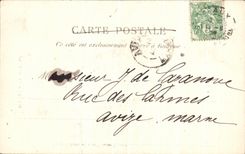 CARTE POSTALE
Ce côté est exclusivement réservé à l'adresse
Monsieur J. de Cazanove
Rue des Carmes
Avize Marne